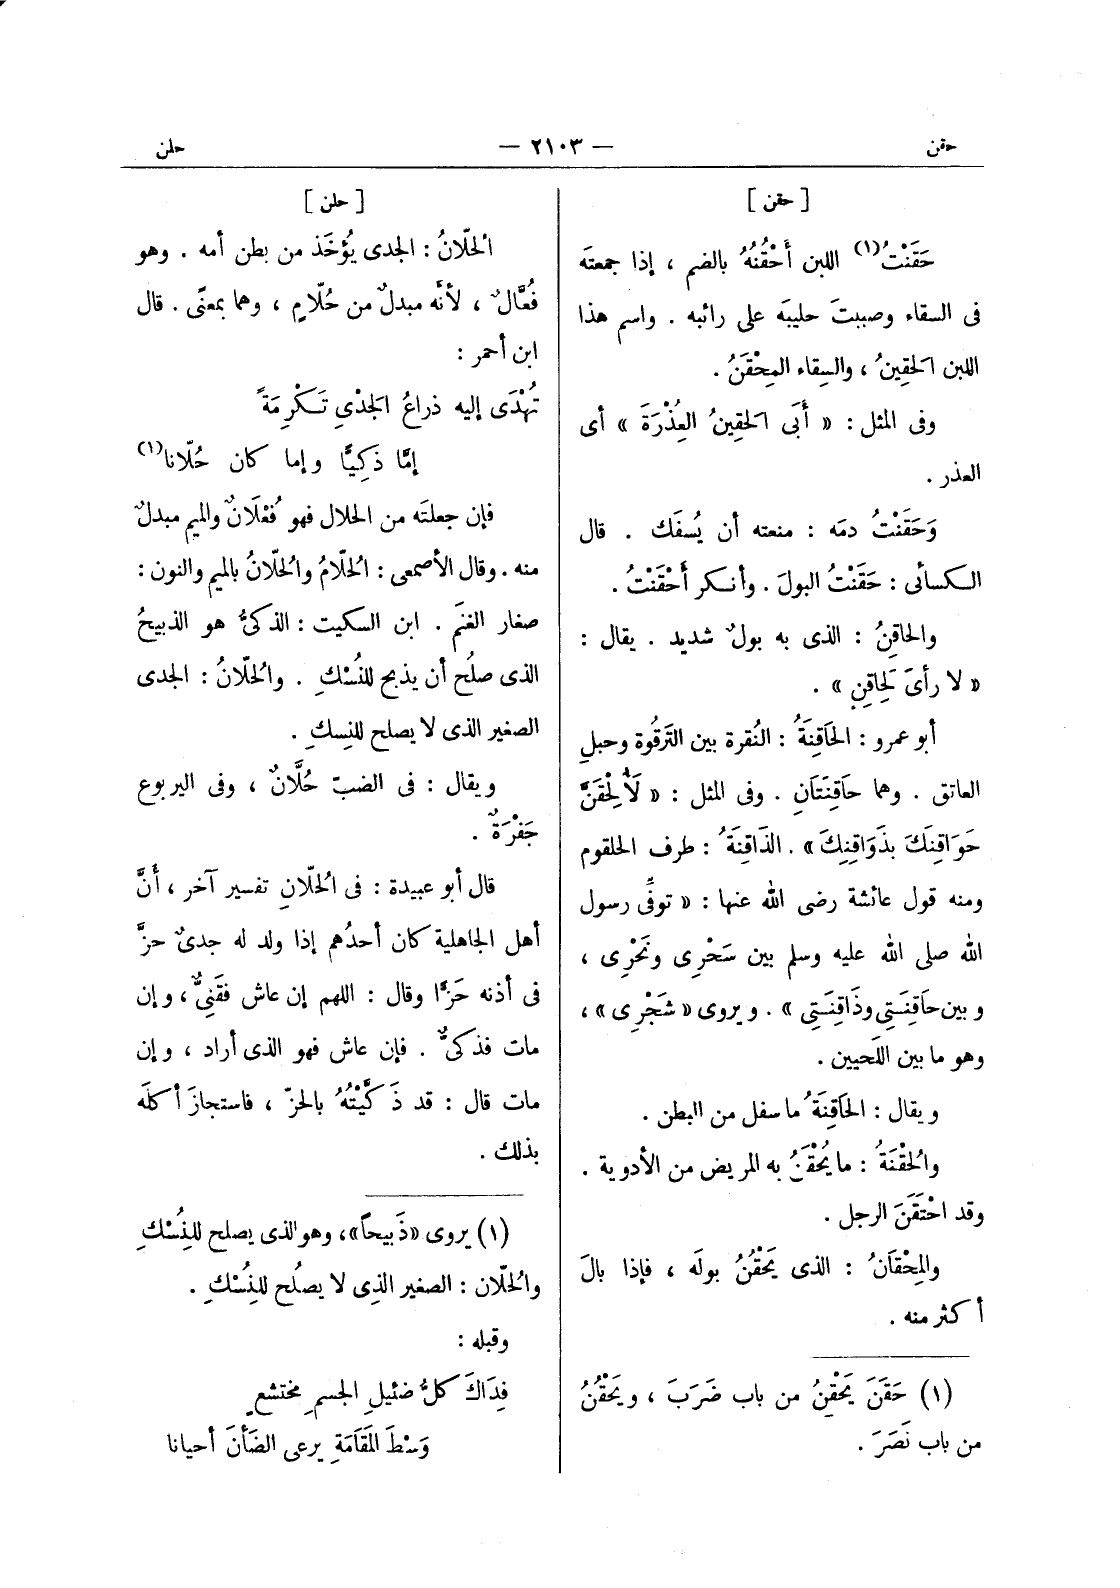 حقن — ٢١٠٣ — حلن
[ حقن ]
حَقَنْتُ(١) اللبن أَحْقُنُهُ بالضم ، إذا جمعتَه
فى السقاء وصببتَ حليبَه على رائبه . واسم هذا
اللبن الحَقِينُ ، والسِقاء المِحْقَنُ .
وفى المثل : « أَبَى الحَقِينُ العِذْرَةَ » أى
العذر .
وَحَقَنْتُ دمَه : منعته أن يُسفَك . قال
الكسائى : حَقَنْتُ البولَ . وأنكر أَحْقَنْتُ .
والحاقِنُ : الذى به بولٌ شديد . يقال :
« لا رأىَ لِحاقِنٍ » .
أبو عمرو : الحَاقِنَةُ : النُقرة بين التَرقُوة وحبلِ
العاتق . وهما حَاقِنَتَانِ . وفى المثل : « لَأُلْحِقَنَّ
حَوَاقِنَكَ بذَوَاقِنِكَ » . الذَاقِنَةُ : طرف الحلقوم
ومنه قول عائشة رضى الله عنها : « توفِّى رسول
الله صلى الله عليه وسلم بين سَحْرِى ونَحْرِى ،
وبين حَاقِنَتِى وذَاقِنَتِى » . ويروى « شَجْرِى » ،
وهو ما بين اللَحيين .
ويقال : الحَاقِنَةُ ما سفل من البطن .
والحُقْنَةُ : ما يُحْقَنُ به المريض من الأدوية .
وقد احْتَقَنَ الرجل .
والمِحْقَانُ : الذى يَحْقُنُ بولَه ، فإذا بالَ
أكثر منه .
(١) حَقَنَ يَحْقِنُ من باب ضَرَبَ ، ويَحْقُنُ
من باب نَصَرَ .
[ حلن ]
الحُلّانُ : الجدى يُؤخَذ من بطن أمه . وهو
فُعَّالٌ ، لأنَّه مبدلٌ من حُلّامٍ ، وهما بمعنًى . قال
ابن أحمر :
تُهْدَى إليه ذراعُ الجَدْىِ تَكْرِمَةً
إمَّا ذَكِيًّا وإما كان حُلّانا(١)
فإن جعلتَه من الحلال فهو فُعْلَانٌ والميم مبدلٌ
منه . وقال الأصمعى : الحُلّامُ والحُلّانُ بالميم والنون :
صغار الغنَم . ابن السكيت : الذكىُّ هو الذبيحُ
الذى صلُح أن يذبح للنُسْكِ . والحُلّانُ : الجدى
الصغير الذى لا يصلح للنِسكِ .
ويقال : فى الضبّ حُلَّانٌ ، وفى اليربوع
جَفْرَةٌ .
قال أبو عبيدة : فى الحُلّانِ تفسير آخر ، أنَّ
أهل الجاهلية كان أحدُهم إذا ولد له جدىٌ حزَّ
فى أذنه حَزًّا وقال : اللهم إن عاش فقَنِىٌّ ، وإن
مات فذكىٌّ . فإن عاش فهو الذى أراد ، وإن
مات قال : قد ذَكَّيْتُهُ بالحزّ ، فاستجازَ أكلَه
بذلك .
(١) يروى «ذَبيحاً» ، وهو الذى يصلح للنِسْكِ
والحُلّان : الصغير الذِى لا يصلُح للنِسْكِ .
وقبله :
فِدَاكَ كلُّ ضئيلِ الجسمِ مختشعٍ
وَسْطَ المَقَامَةِ يرعى الضَأنَ أحيانا